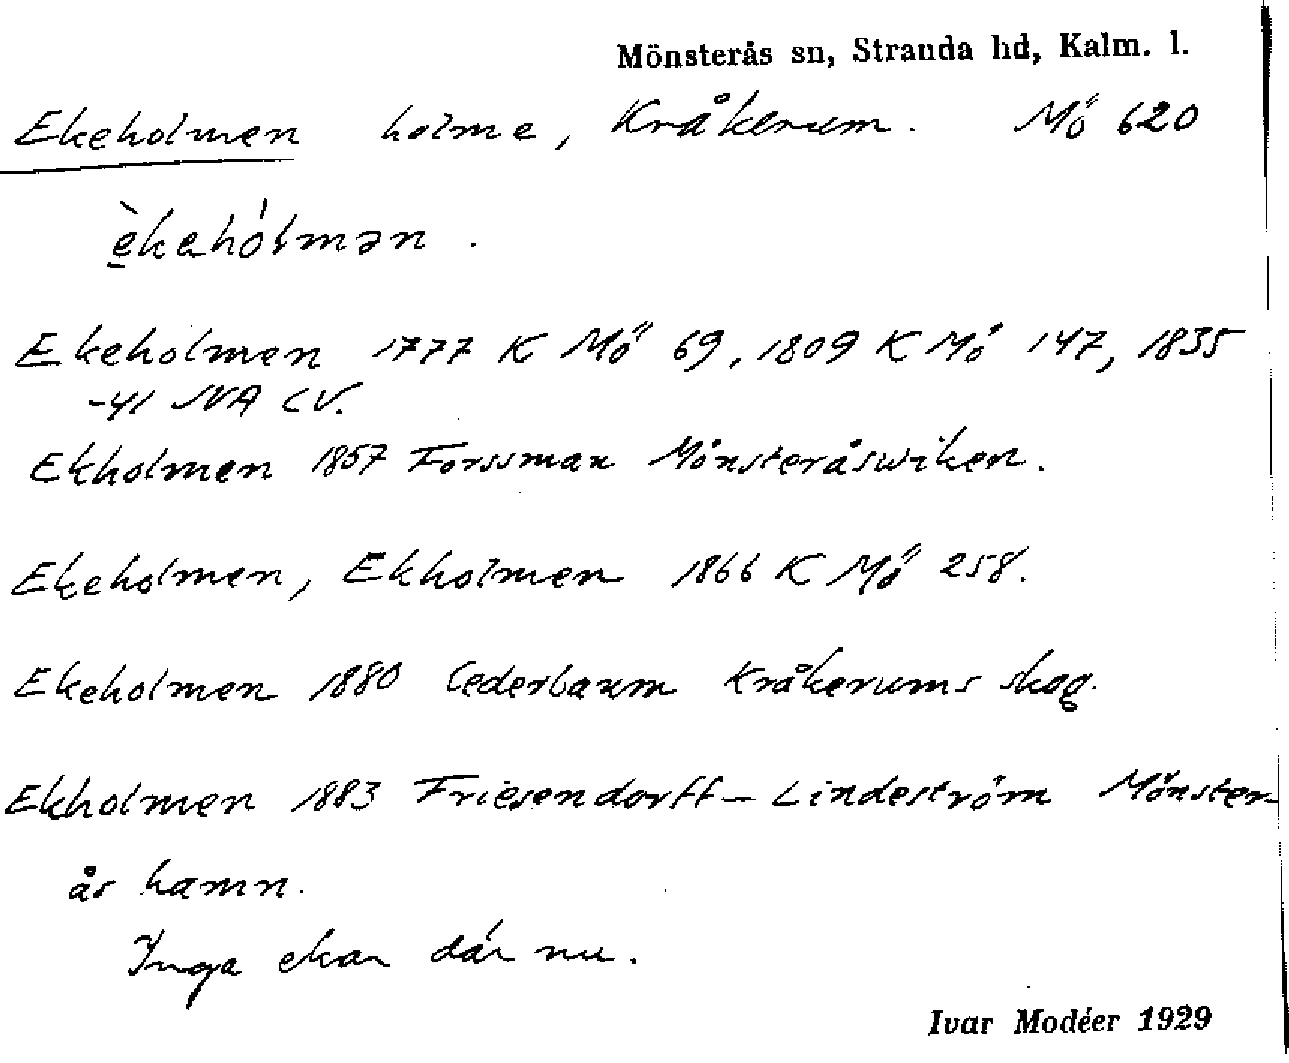 Mönsterås sn, Stranda hd, Kalm. l.
Ekeholmen holme, Kråkerum. Mö 620
èkəhólmən.
Ekeholmen 1777 K Mö 69, 1809 K Mö 147, 1835
-41 JVA CV.
Ekholmen 1857 Forssman Mönsteråswiken.
Ekeholmen, Ekholmen 1866 K Mö 258.
Ekeholmen 1880 Cederbaum Kråkerums skog.
Ekholmen 1883 Friesendorff - Lindeström Mönster-
ås hamn.
Inga ekar där nu.
Ivar Modéer 1929